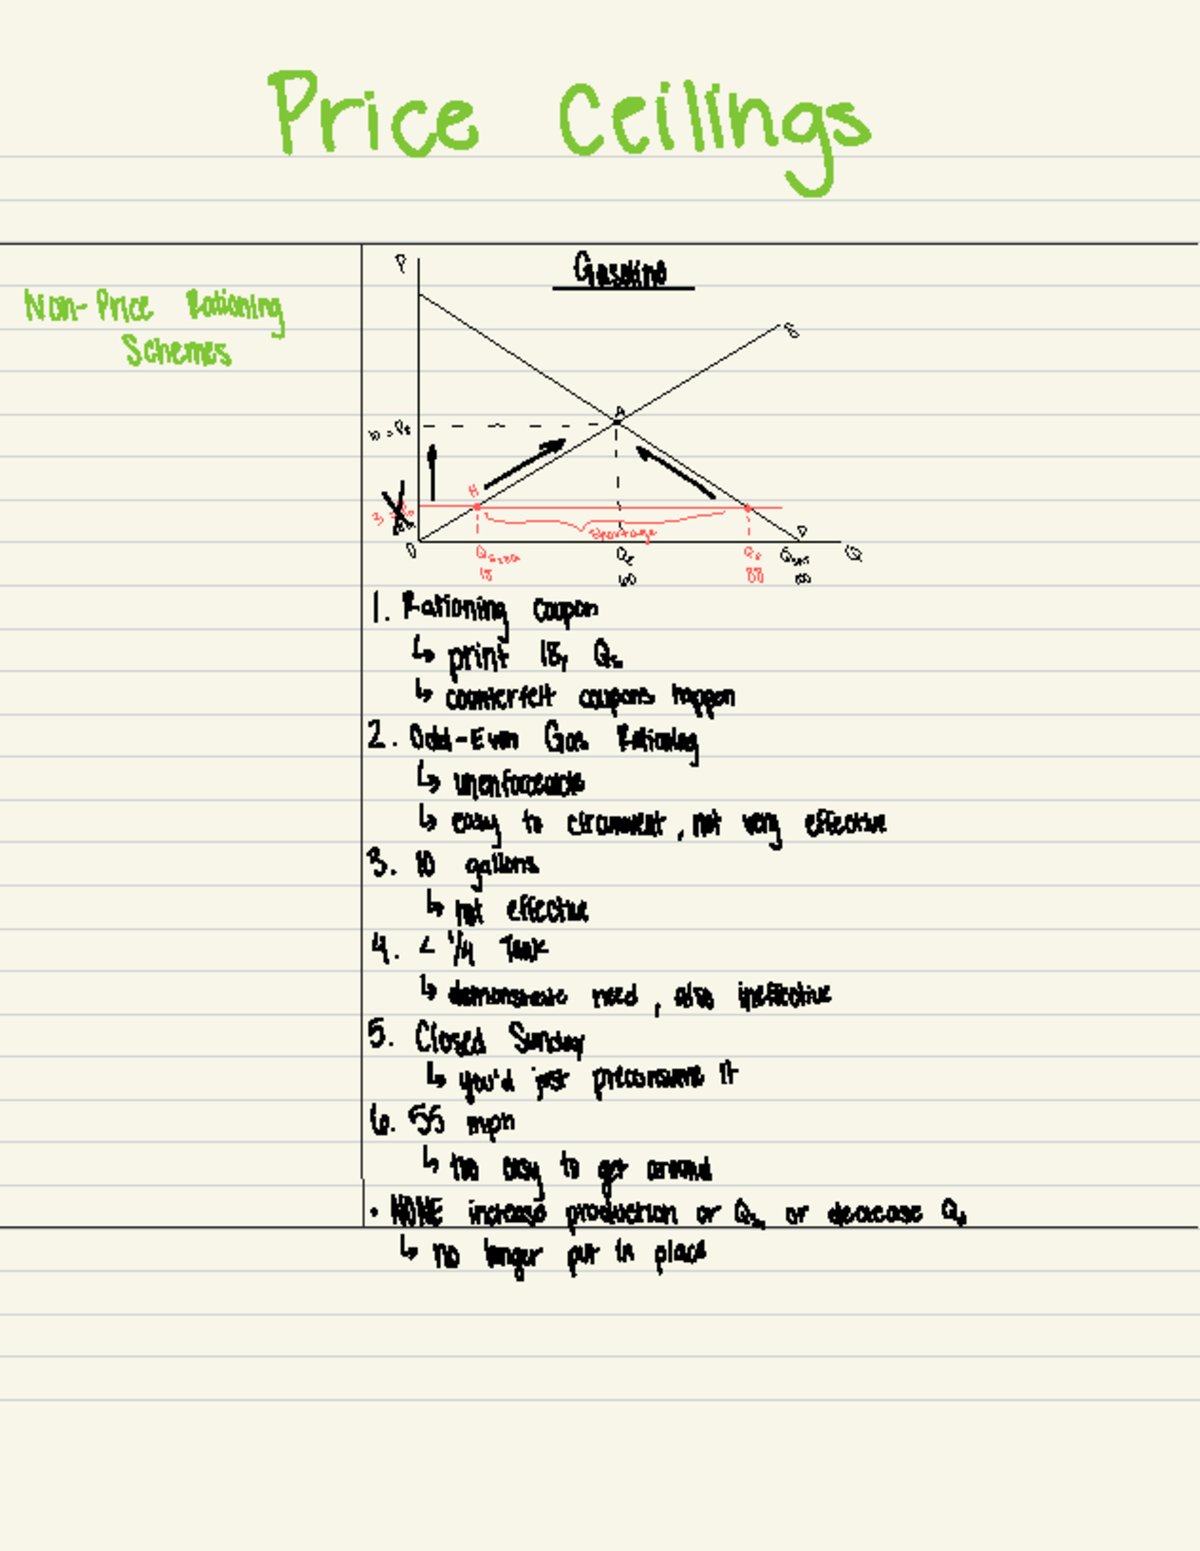 Price Ceilings
Non-Price Rationing
Schemes
Gasoline
P
S
A
10 = Pe
H
3
shortage
D
0
18
Qe
Qd
88
Q
1. Rationing coupon
↳ print 18, Qs
↳ counterfeit coupons happen
2. Odd-Even Gas Rationing
↳ unenforceable
↳ easy to circumvent, not very effective
3. 10 gallons
↳ not effective
4. < 1/4 Tank
↳ demonstrate need, also ineffective
5. Closed Sunday
↳ you'd just preconsume it
6. 55 mph
↳ too easy to get around
• NONE increase production or Qs, or decrease Qd
↳ no longer put in place